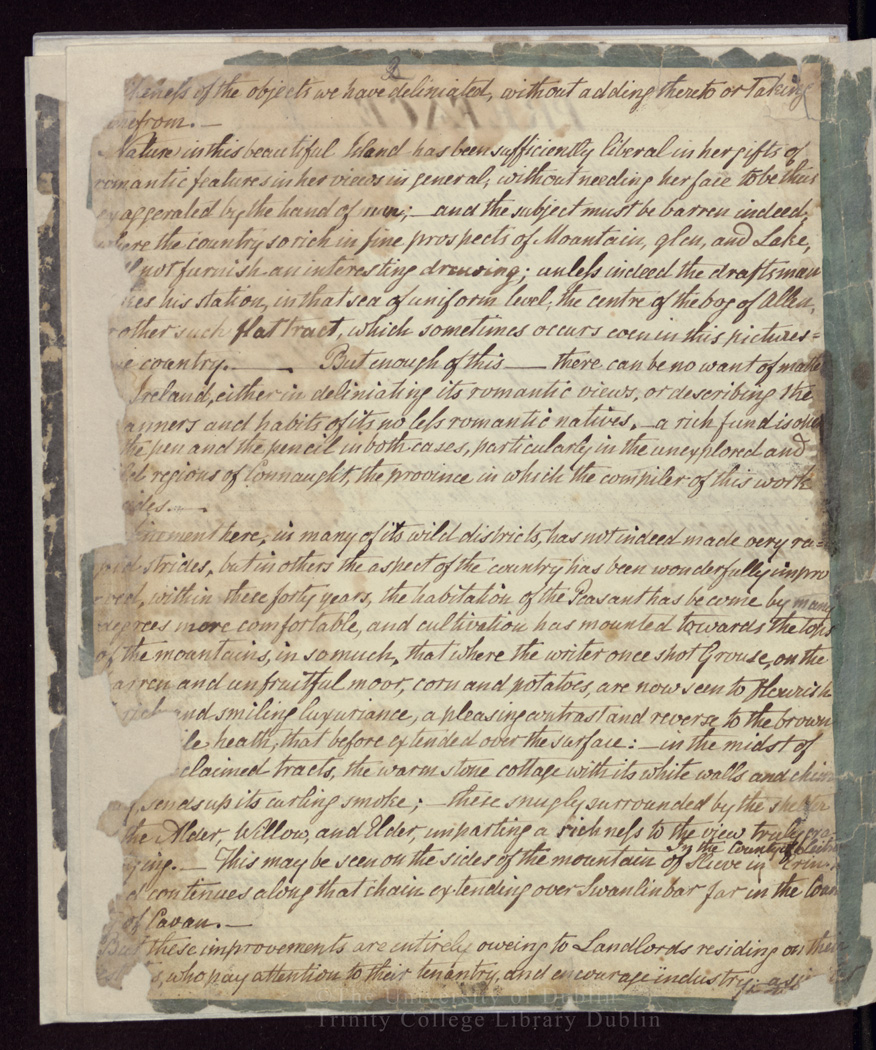 2
of the objects we have deliniated, without adding thereto or Taking
from. —
Nature in this beautiful Island has been sufficiently liberal in her gifts of
romantic features in her views in general, without needing her face to be thus
exaggerated by the hand of man; — and the subject must be barren indeed,
where the country so rich in fine prospects of Mountain, glen, and Lake,
not furnish an interesting drawing; unless indeed the draftsman
his station, in that sea of uniform level, the centre of the bog of Allen,
other such flat tract, which sometimes occurs even in this pictures=
country. — . But enough of this — there can be no want of
Ireland, either in deliniating its romantic views, or describing the
anners and habits of its no less romantic natives. — a rich fund is
the pen and the pencil in both cases, particularly in the unexplored and
regions of Connaught, the province in which the compiler of this work
ides. — .
here, in many of its wild districts, has not indeed made very ra=
pid strides, but in others the aspect of the country has been wonderfully impro
ved, within these forty years, the habitation of the Peasant has become by many
degrees more comfortable, and cultivation has mounted towards the tops
of the mountains, in so much, that where the writer once shot Grouse, on the
arren and unfruitful moor, corn and potatoes, are now seen to flourish
rich and smiling luxuriance, a pleasing contrast and reverse to the brown
ile heath, that before extended over the surface: — in the midst of
claimed tracts, the warm stone cottage with its white walls and chim
sends up its curling smoke; — these snugly surrounded by the shelter
the Alder, Willow, and Elder, imparting a richness to the view truly
In the County of Leitrim
ging. — This may be seen on the sides of the mountain of Slieve in Erin
contenues along that chain extending over Swanlinbar far in the Coun
of Cavan. —
But these improvements are entirely oweing to Landlords residing on their
s, who pay attention to their tenantry, and encourage industry;
© The University of Dublin
Trinity College Library Dublin